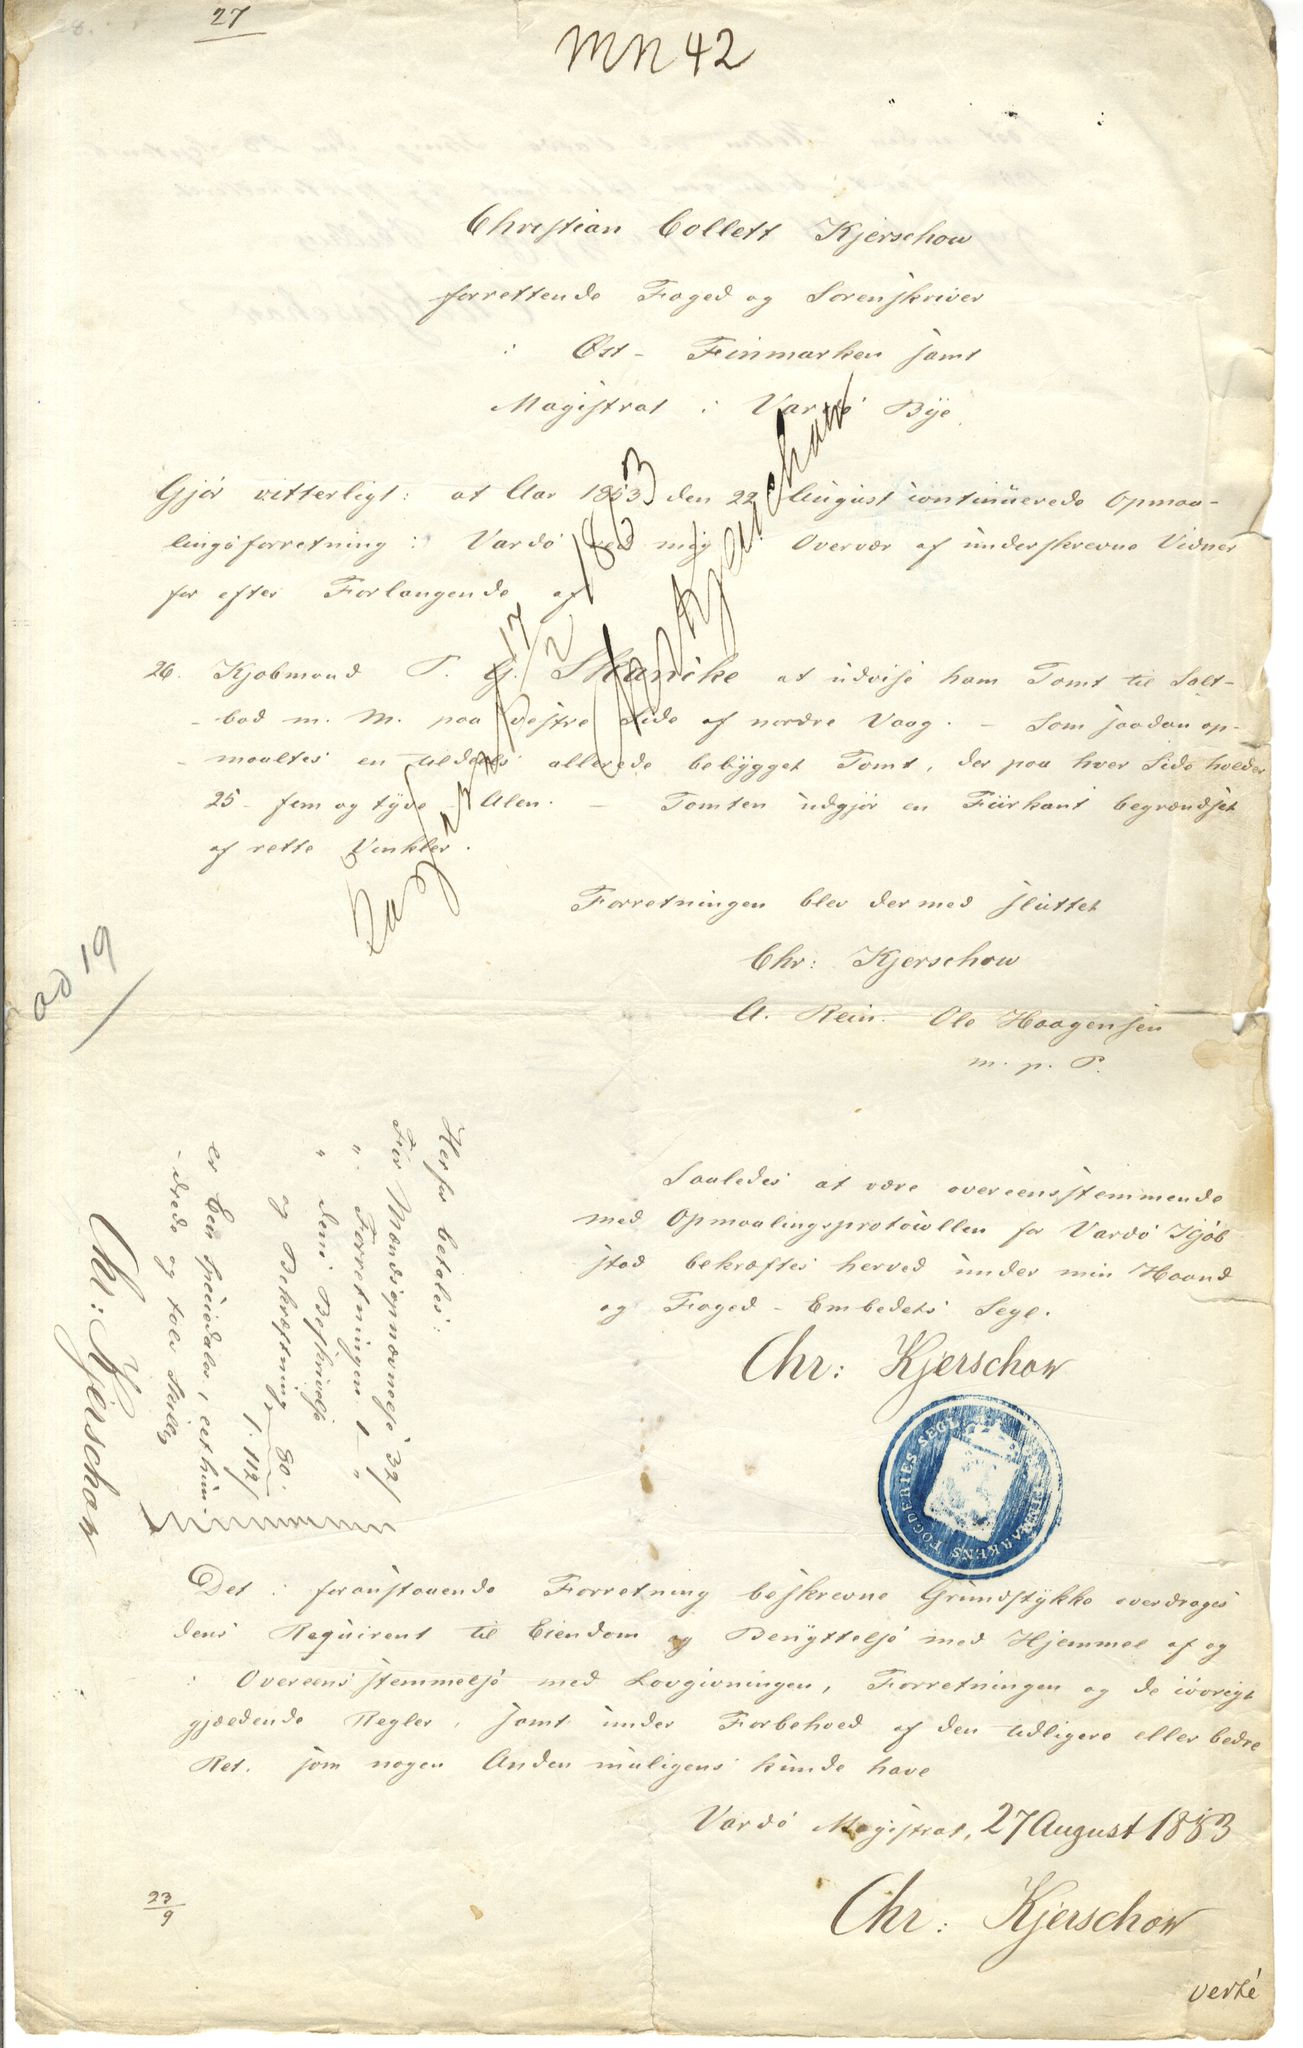 27
MN 42
Christian Collett Kjerschow
forrettende Foged og Sorenskriver
i Øst-Finmarken samt
Magistrat i Vardø Bye
Gjør vitterligt: at Aar 1853 den 22 August continuerede Opmaa-
lingsforretning i Vardø ved mig i Overvær af underskrevne Vidner
for efter Forlangende af
26. Kjøbmand P. G. Skancke at udvise ham Tomt til Salt-
-bod m. M. paa vestre Side af nordre Vaag. - Som saadan op-
-maaltes en tildeels allerede bebygget Tomt, der paa hver Side holder
25 - fem og tyve Alen. - Tomten udgjør en Fiirkant begrændset
af rette Vinkler.
17/2 1863
Chr Kjerschow
Forretningen blev dermed sluttet
Chr: Kjerschow
A. Rein. Ole Haagensen
m. p. P.
ad 19
Saaledes at være overeensstemmende
med Opmaalingsprotocollen for Vardø Kjøb
stad bekræftes herved under min Haand
og Foged-Embedets Segl.
Chr: Kjerschow
FINMARKENS FOGDERIES SEGL
Herfor betales:
For Mændsopnævnelse 32/
" Forretningen 1 - "
" dens Beskrivelse
og Bekræftning 80.
1. 112/
er Een Speciedaler, eethun-
-drede og tolv Skilling
Chr: Kjerschow
Det i foranstaaende Forretning beskrevne Grundstykke overdrages
dens Requirent til Eiendom og Benyttelse med Hjemmel af og
i Overeensstemmelse med Lovgivningen, Forretningen og de iøvrigt
gjældende Regler, samt under Forbehold af den tidligere eller bedre
Ret, som nogen Anden muligens kunde have
Vardø Magistrat, 27 August 1853
Chr: Kjerschow
23/9
verte